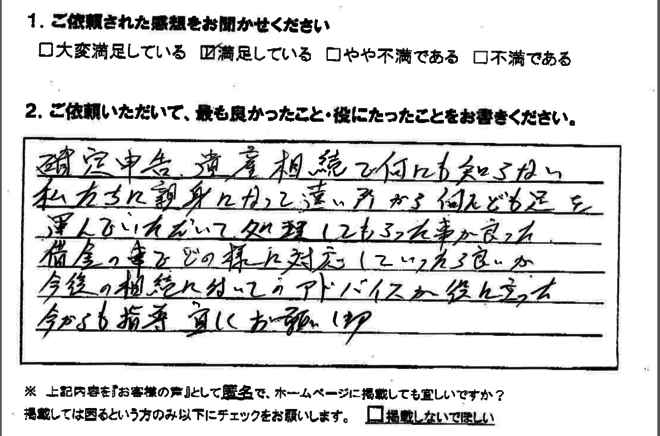 1. ご依頼された感想をお聞かせください
□大変満足している ☑満足している □やや不満である □不満である
2. ご依頼いただいて、最も良かったこと・役にたったことをお書きください。
確定申告、遺産相続で何にも知らない
私たちに親身になって遠い所から何度も足を
運んでいただいて処理してもらった事が良かった
借金の事でどの様に対応していったら良いか
今後の相続に付いてのアドバイスが役に立った
今からも指導宜しくお願いします
※ 上記内容を『お客様の声』として匿名で、ホームページに掲載しても宜しいですか?
掲載しては困るという方のみ以下にチェックをお願いします。 □掲載しないでほしい